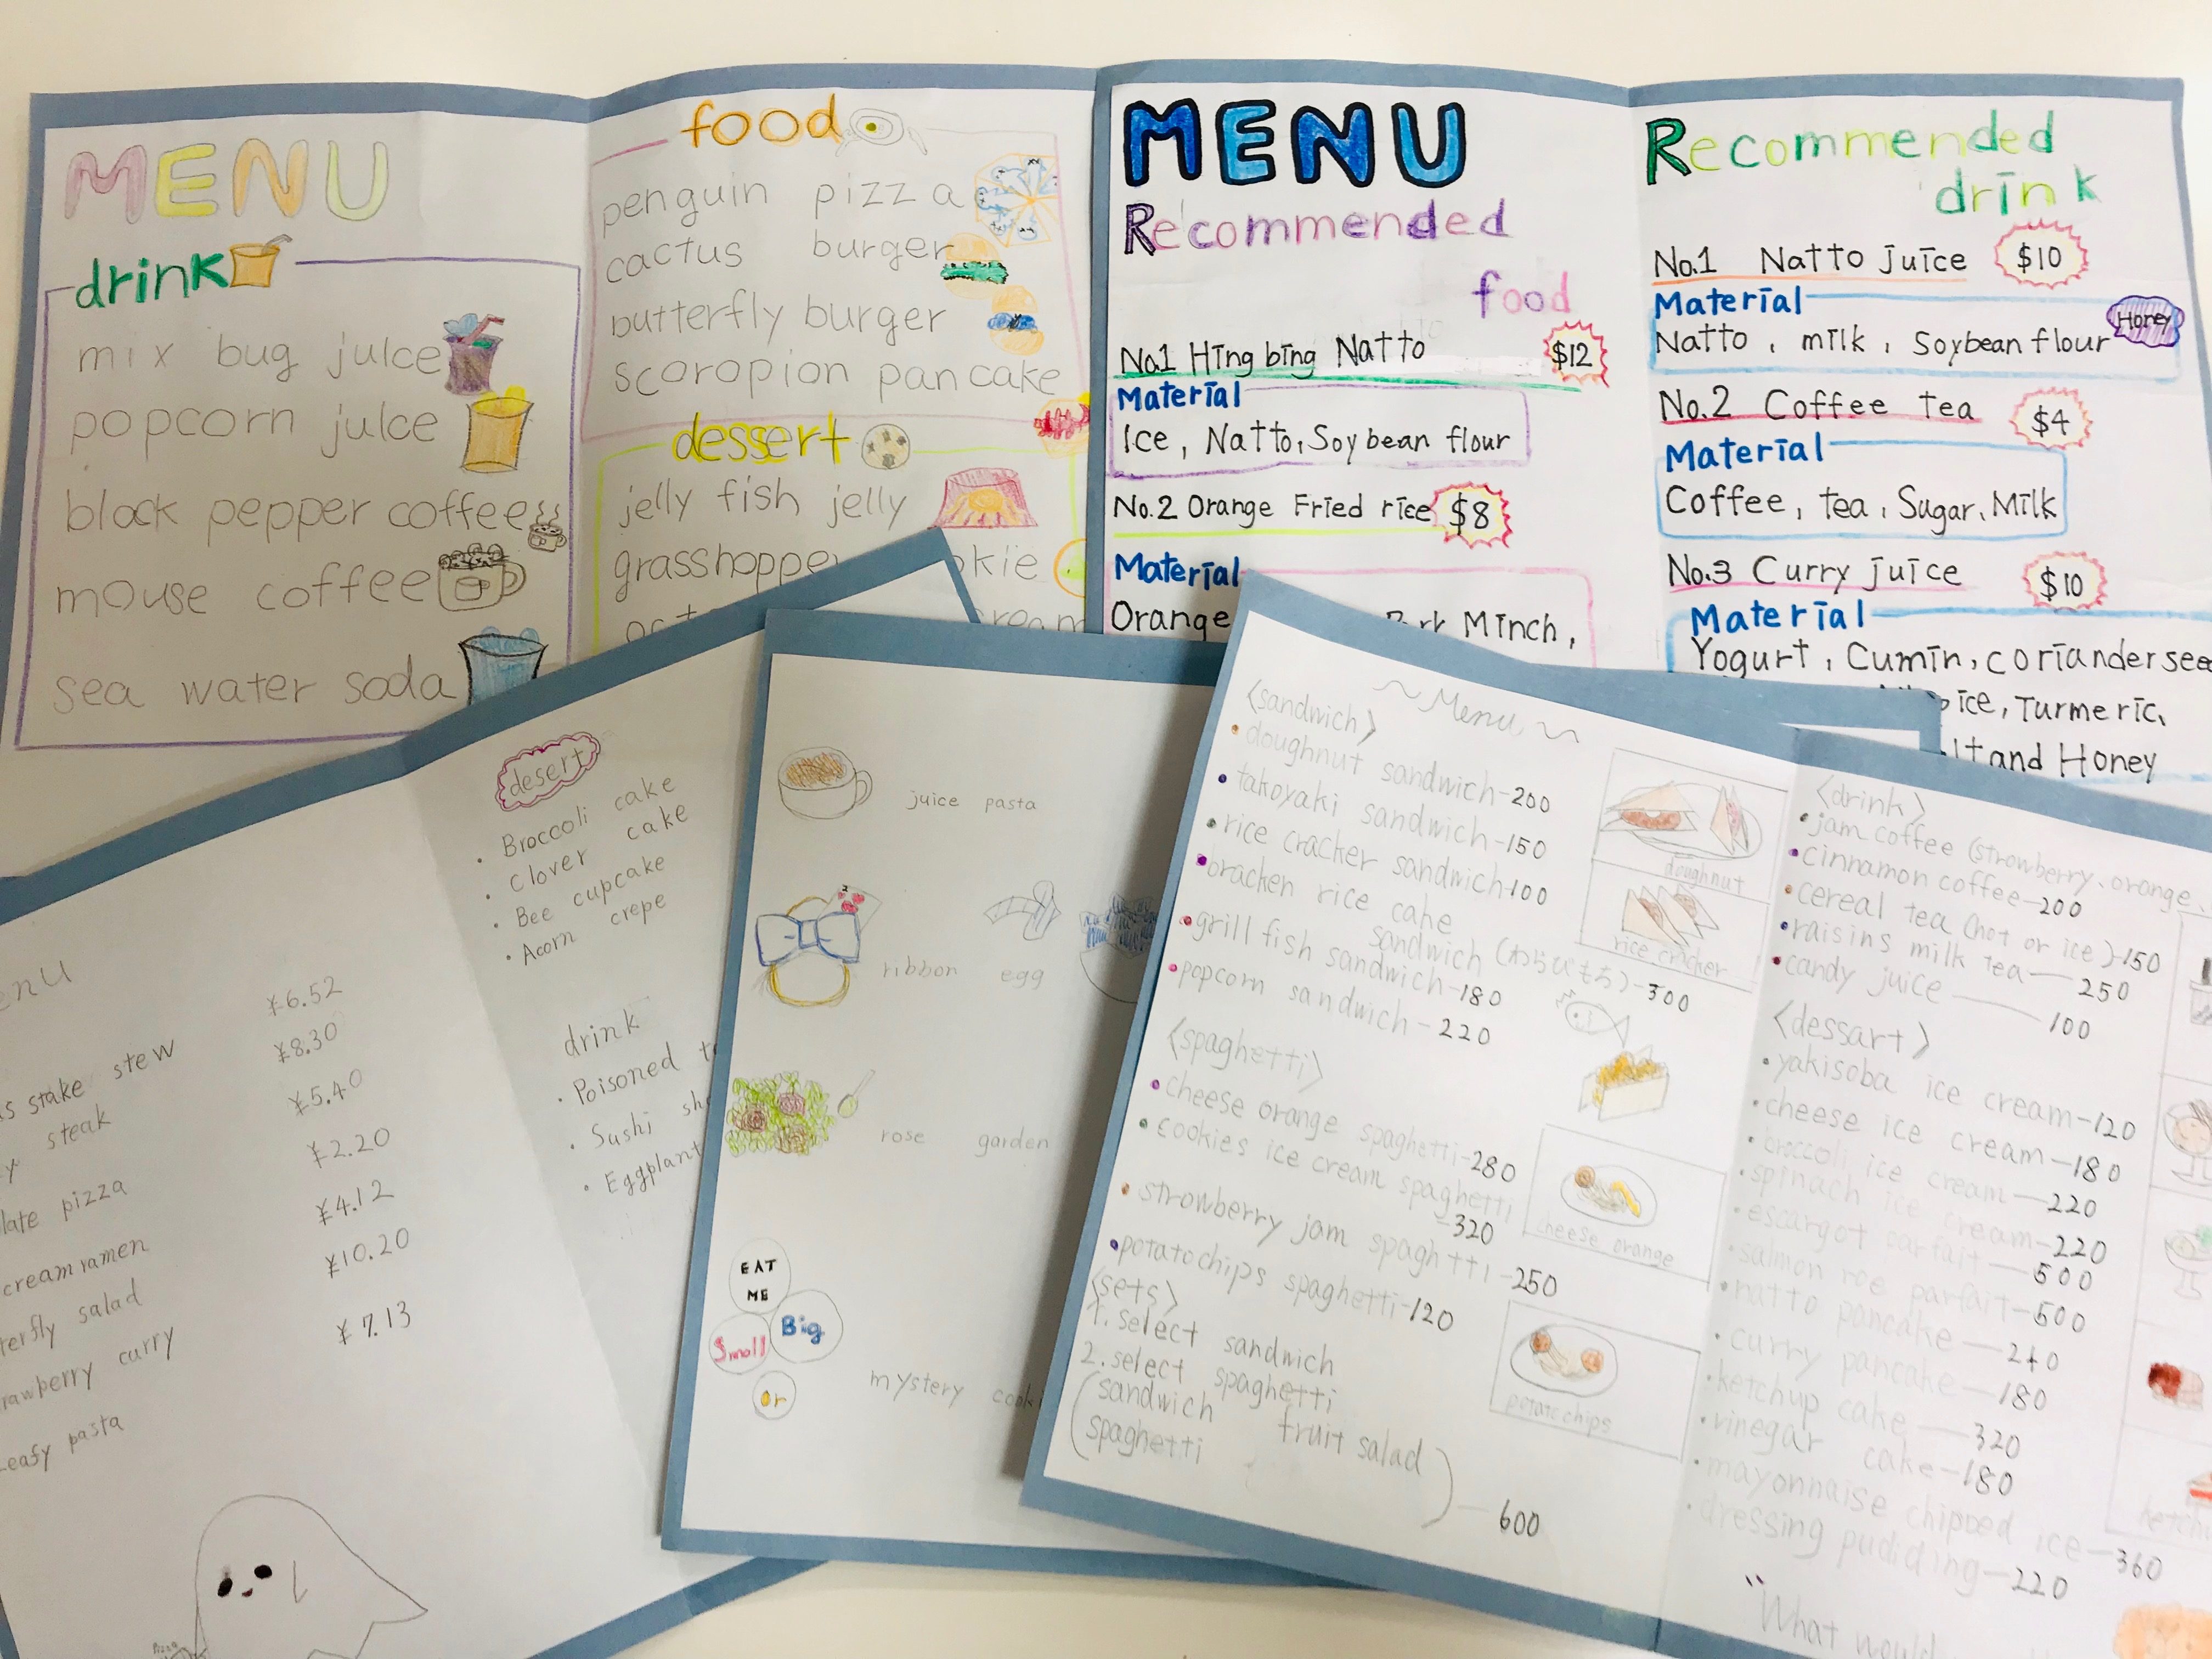 MENU
drink
mix bug juice
popcorn juice
black pepper coffee
mouse coffee
sea water soda
food
penguin pizza
cactus burger
butterfly burger
scoropion pancake
dessert
jelly fish jelly
grasshopper
MENU
Recommended
food
No.1 Hing bing Natto $12
Material
Ice, Natto, Soybean flour
No.2 Orange Fried rice $8
Material
Orange
Minch,
Recommended
drink
No.1 Natto juice $10
Material
Natto, milk, Soybean flour
Honey
No.2 Coffee tea $4
Material
Coffee, tea, Sugar, Milk
No.3 Curry juice $10
Material
Yogurt, Cumin, coriander
Turmeric,
and Honey
stake stew ¥6.52
steak ¥8.30
pizza ¥5.40
cream ramen ¥2.20
salad ¥4.12
curry ¥10.20
pasta ¥7.13
desert
• Broccoli cake
• Clover cake
• Bee cupcake
• Acorn crepe
drink
• Poisoned
• Sushi
• Eggplant
juice pasta
ribbon egg
rose garden
EAT
ME
Small
Big
or
mystery
~Menu~
<sandwich>
• doughnut sandwich-200
• takoyaki sandwich-150
• rice cracker sandwich-100
• bracken rice cake
sandwich (わらびもち)-300
• grill fish sandwich-180
• popcorn sandwich-220
<spaghetti>
• cheese orange spaghetti-280
• cookies ice cream spaghetti
-320
• strowberry jam spaghtti-250
• potatochips spaghetti-120
<sets>
1. select sandwich
2. select spaghetti
(sandwich
spaghetti fruit salad)-600
doughnut
rice cracker
cheese orange
potatochips
<drink>
• jam coffee (strowberry, orange
• cinnamon coffee-200
• cereal tea (hot or ice)-150
• raisins milk tea-250
• candy juice-100
<dessart>
• yakisoba ice cream-120
• cheese ice cream-180
• broccoli ice cream-220
• spinach ice cream-220
• escargot parfait-500
• salmon roe parfait-500
• natto pancake-240
• curry pancake-180
• ketchup cake-320
• vinegar cake-180
• mayonnaise chipped ice-360
• dressing pudiding-220
"What would